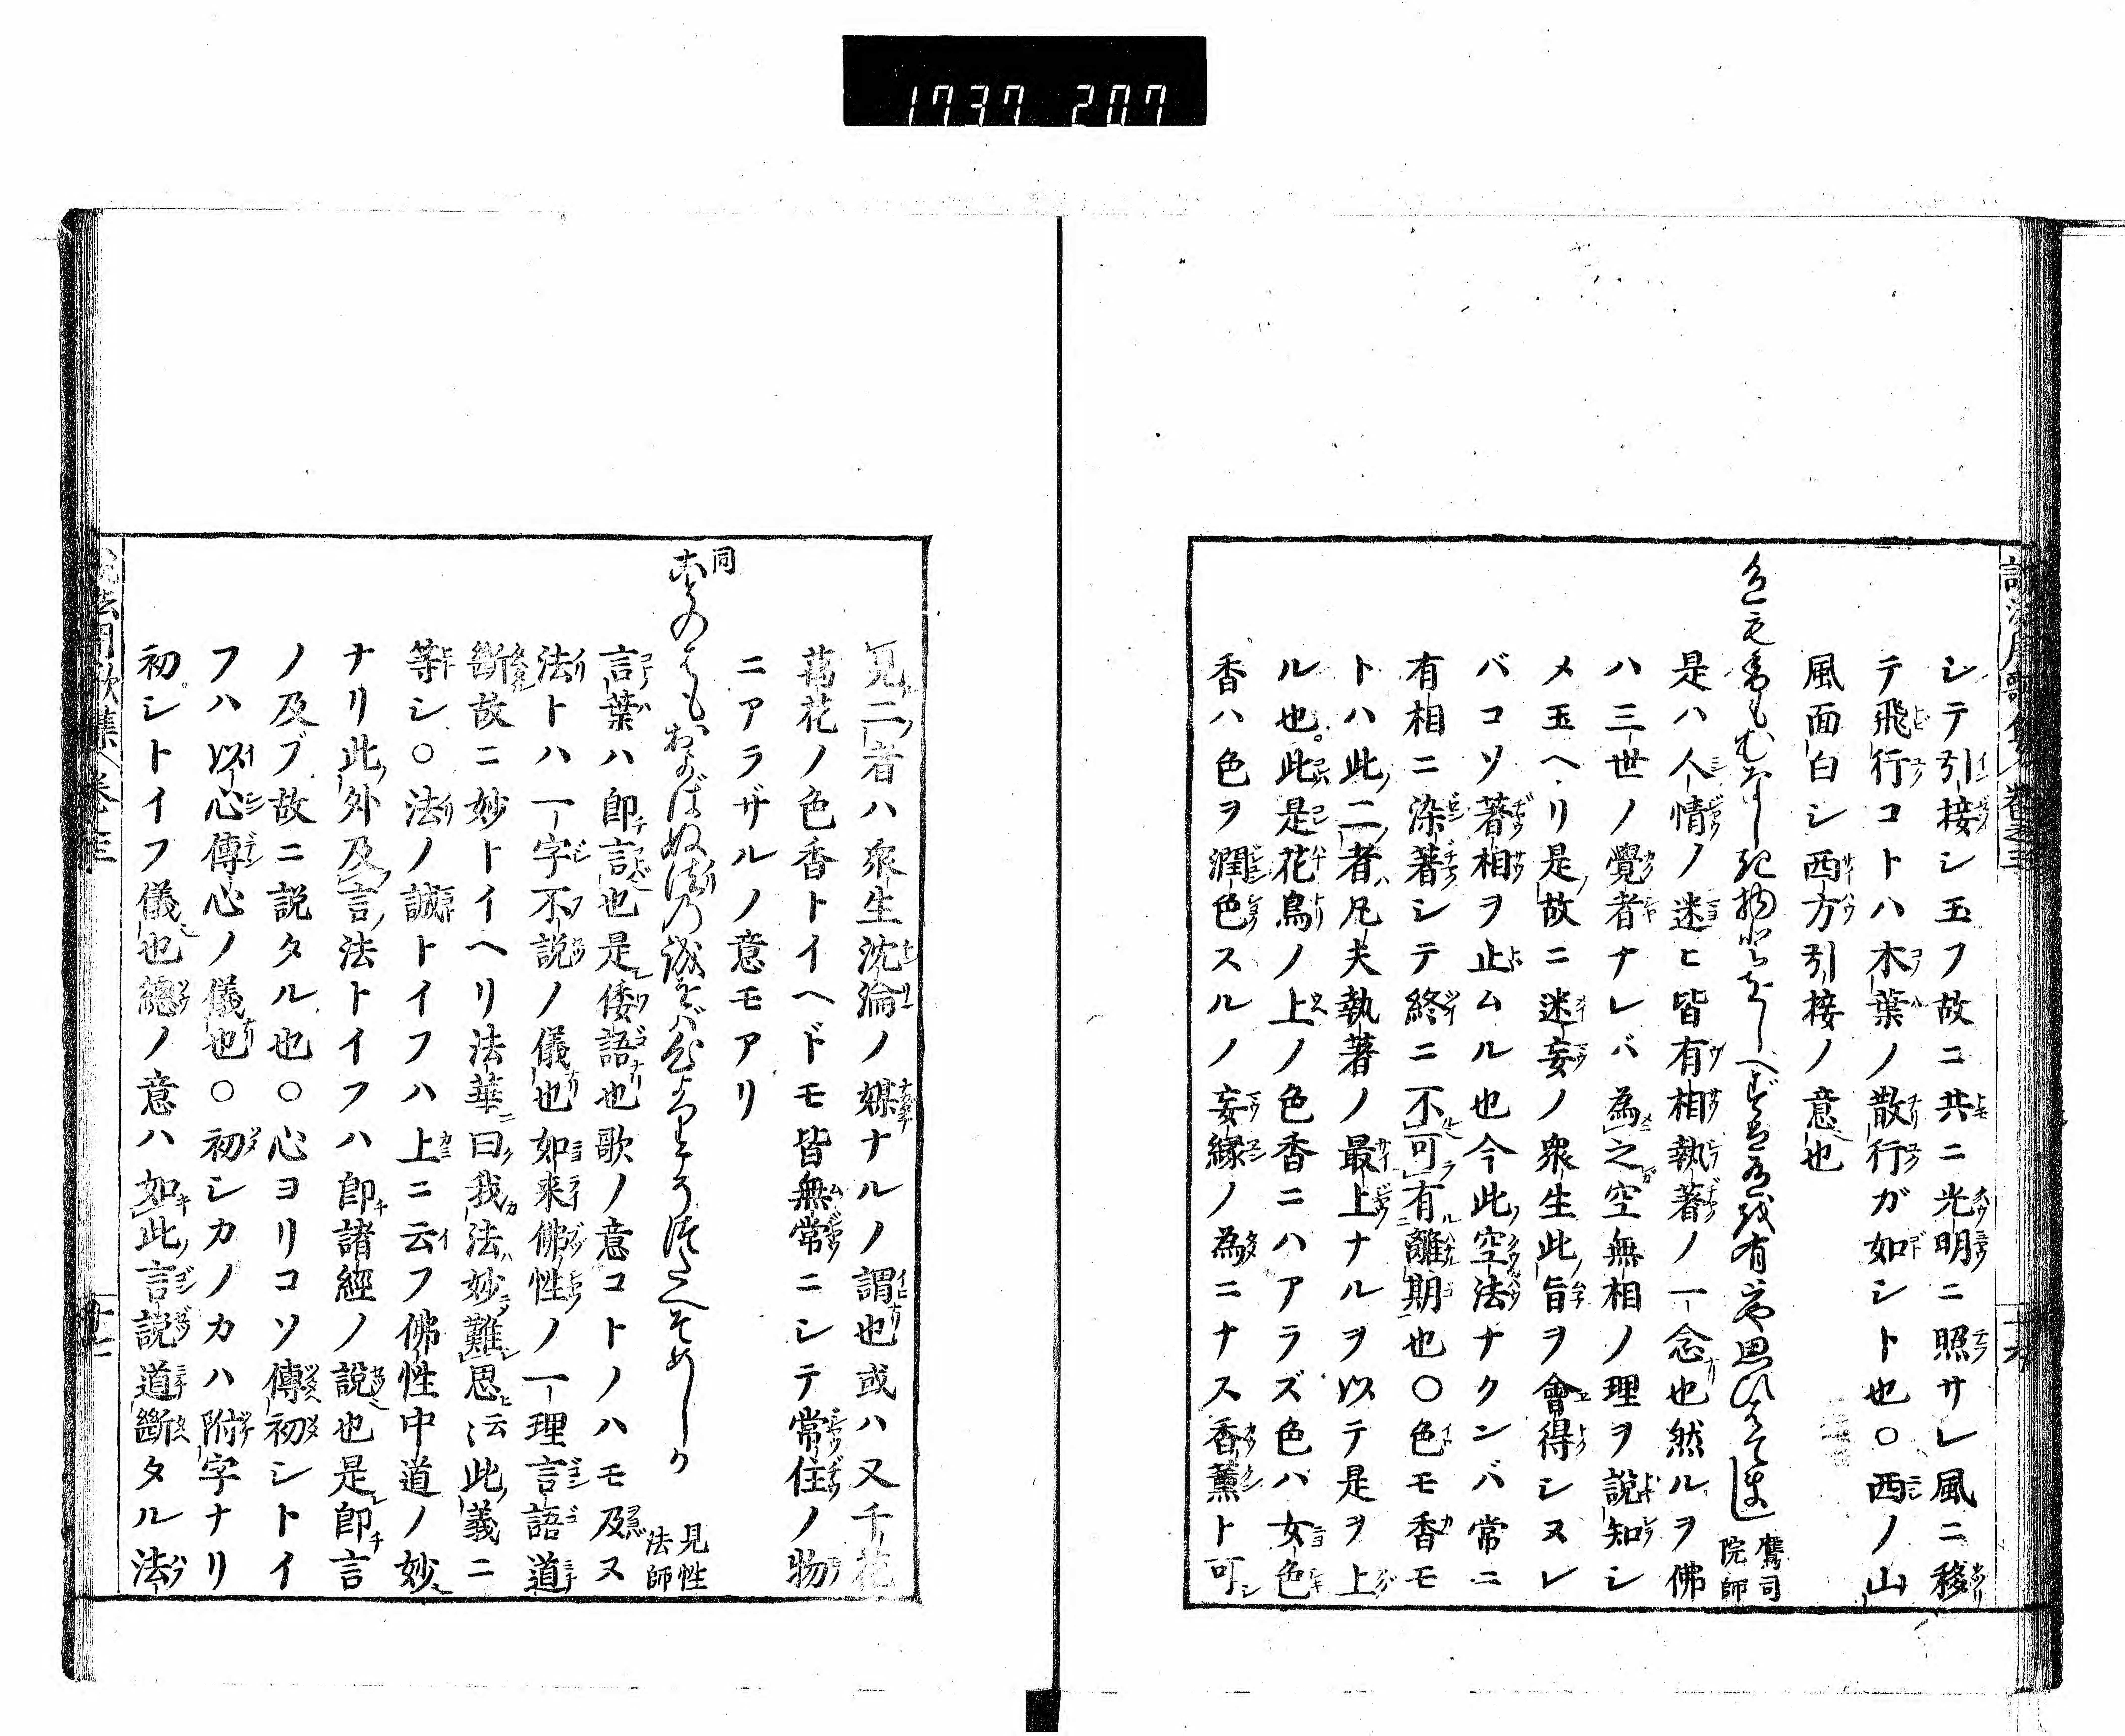 1737 207
シテ引接シ玉フ故ニ共ニ光明ニ照サレ風ニ移
テ飛行コトハ木葉ノ散行ガ如シト也○西ノ山
風面白シ西方引接ノ意也
鷹司
院師
是ハ人情ノ迷ヒ皆有相執著ノ一念也然ルヲ佛
ハ三世ノ覺者ナレバ為之空無相ノ理ヲ説知シ
メ玉ヘリ是故ニ迷妄ノ衆生此旨ヲ會得シヌレ
バコソ著相ヲ止ムル也今此空法ナクンバ常ニ
有相ニ染著シテ終ニ不可有離期也○色モ香モ
トハ此二者凡夫執著ノ最上ナルヲ以テ是ヲ上
ル也此是花鳥ノ上ノ色香ニハアラズ色ハ女色
香ハ色ヲ潤色スルノ妄縁ノ為ニナス香薫ト可
見二者ハ衆生沈淪ノ媒ナルノ謂也或ハ又千花
萬花ノ色香トイヘドモ皆無常ニシテ常住ノ物
ニアラザルノ意モアリ
同
ことのはもおよばぬ法の誠をば心よりこそつたへそめしか
見性
法師
言葉ハ即言也是倭語也歌ノ意コトノハモ及ヌ
法トハ一字不説ノ儀也如来佛性ノ一理言語道
斷故ニ妙トイヘリ法華曰我法妙難思云此義ニ
等シ○法ノ誠トイフハ上ニ云フ佛性中道ノ妙
ナリ此外及言法トイフハ即諸經ノ説也是即言
ノ及ブ故ニ説タル也○心ヨリコソ傳初シトイ
フハ以心傳心ノ儀也○初シカノカハ附字ナリ
初シトイフ儀也總ノ意ハ如此言説道斷タル法